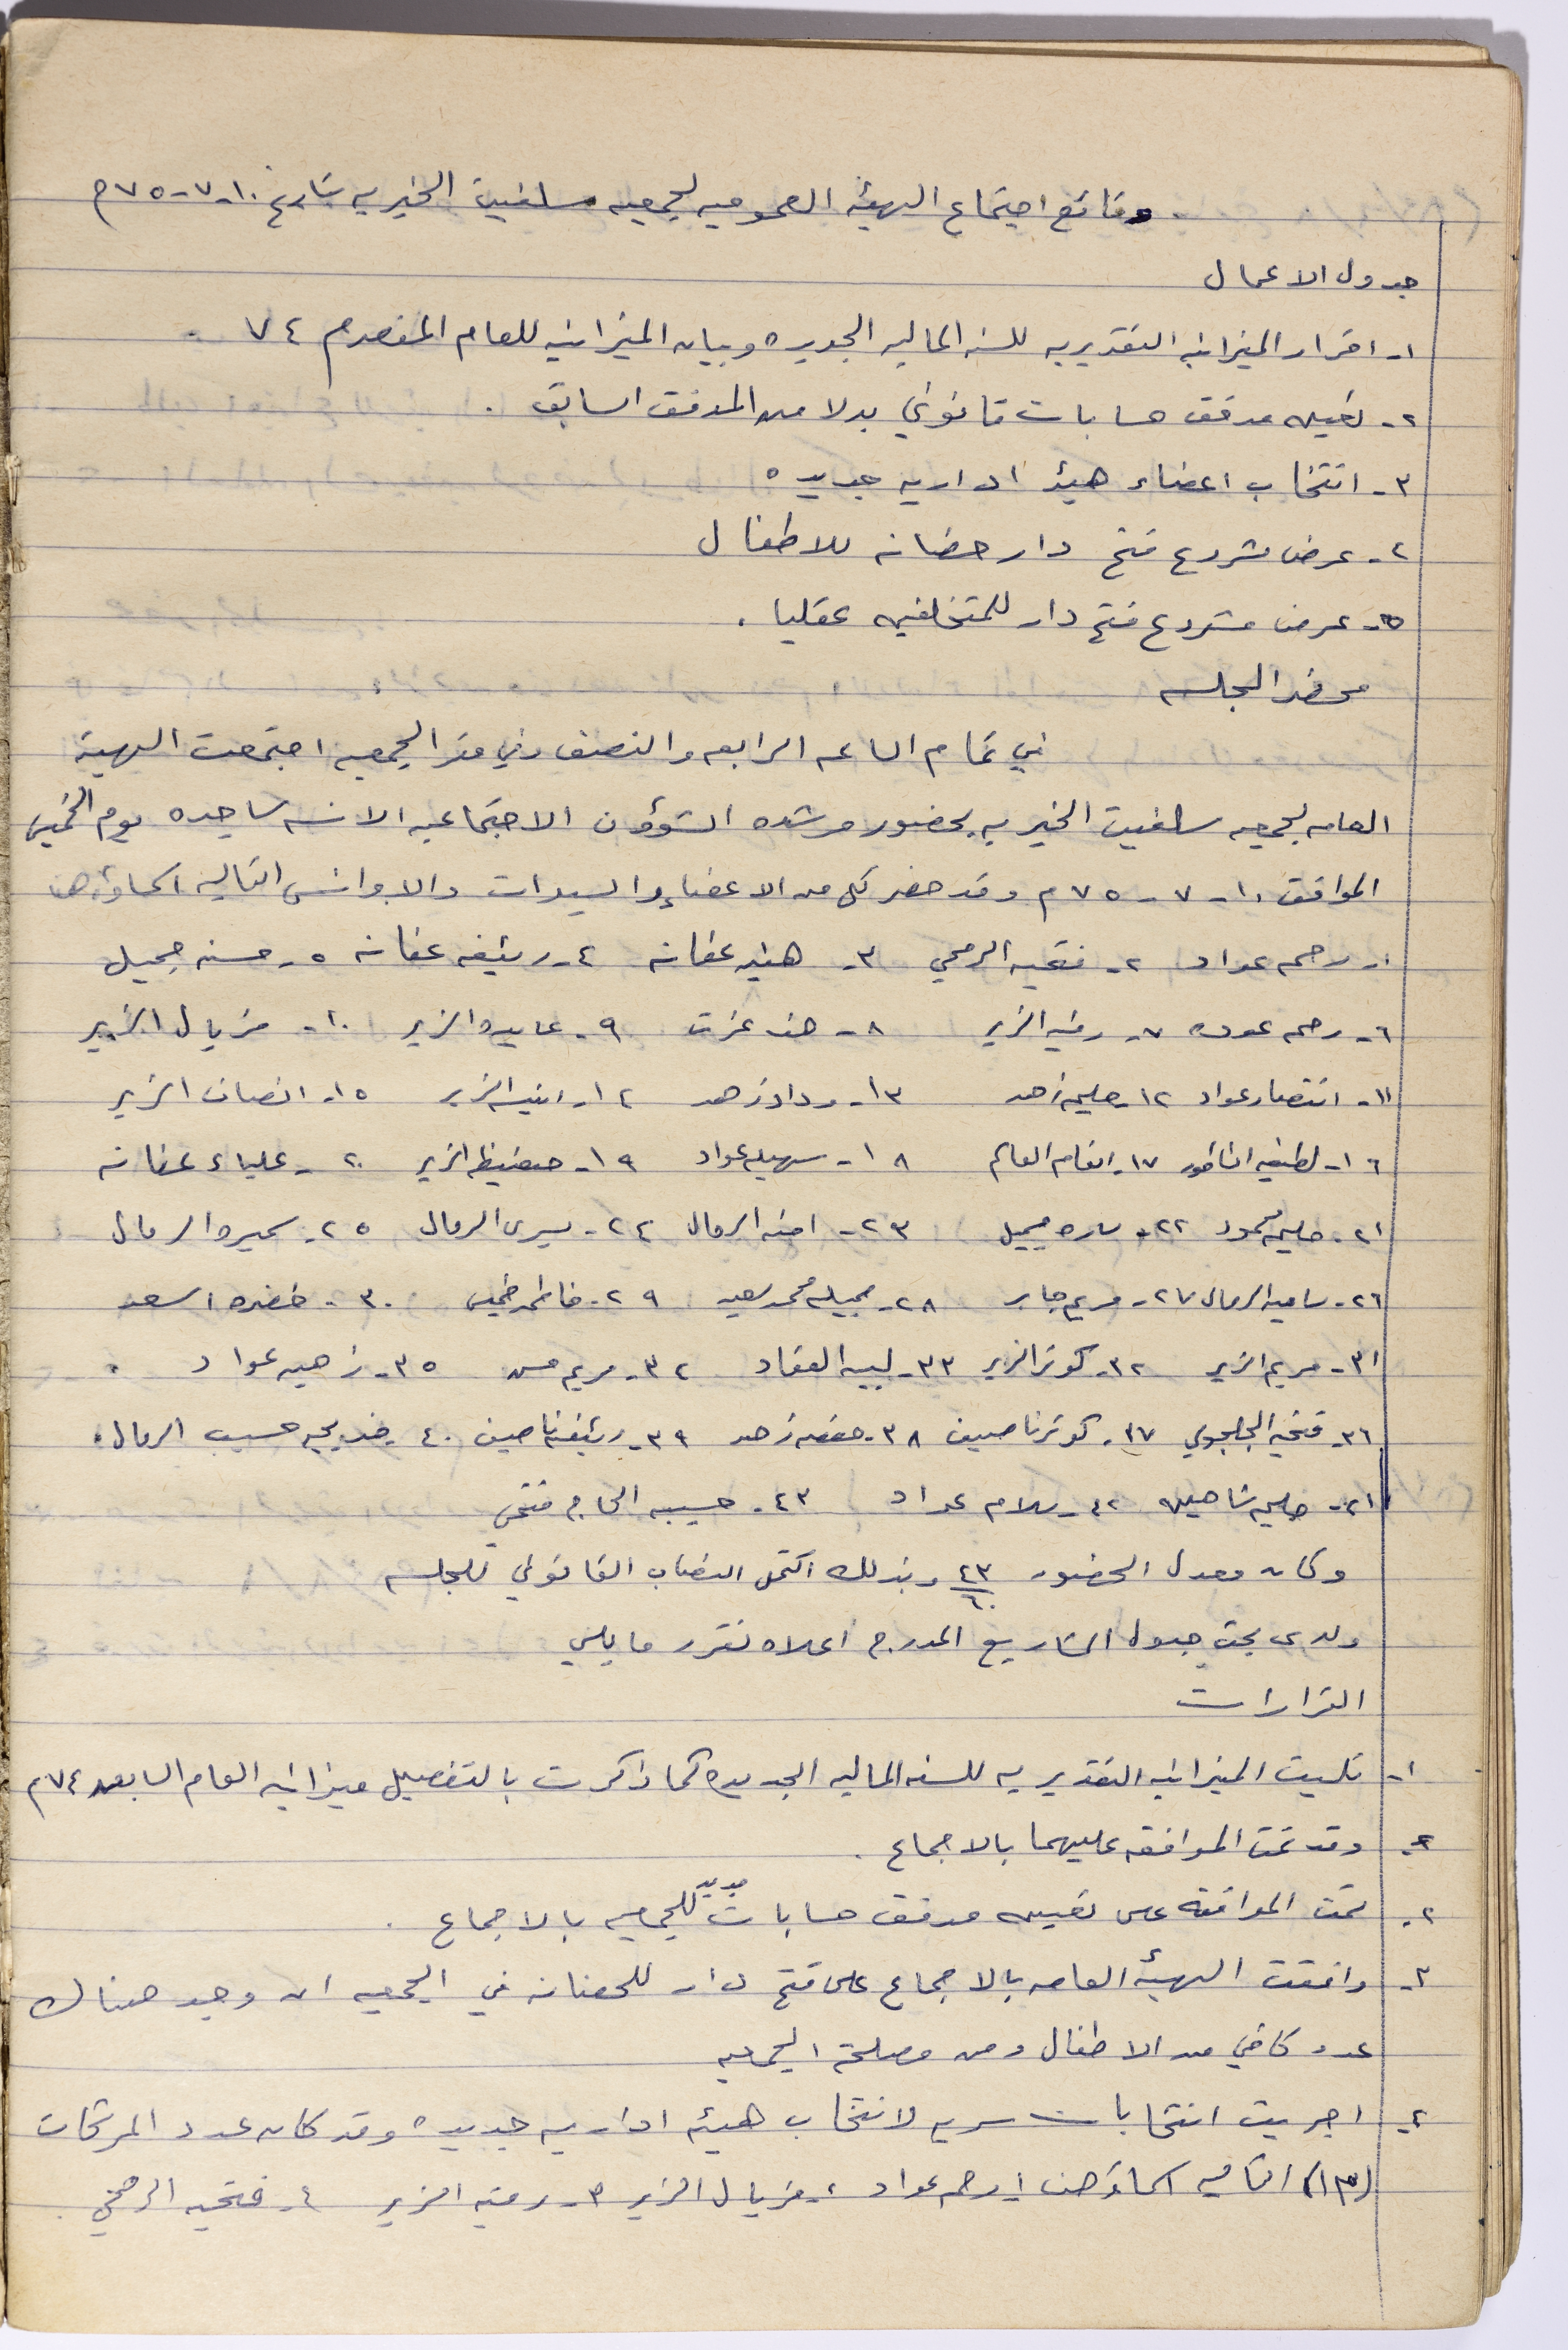 وقائع اجتماع الهيئه العموميه لجمعيه سلفيت الخيريه بتاريخ ١٠-٧-٧٥م
جدول الاعمال
١- اقرار الميزانيه التقديريه للسنه الماليه الجديده وبيان الميزانيه للعام المنصرم ٧٤ .
٢- تعيين مدقق حسابات قانوني بدلا من المدقق السابق .
٣- انتخاب اعضاء هيئه اداريه جديده
٤- عرض مشروع فتح دار حضانه للاطفال
٥- عرض مشروع فتح دار للمتخلفين عقليا .
محضر الجلسه
في تمام الساعه الرابعه والنصف وفي مقر الجمعيه اجتمعت الهيئة
العامه لجمعيه سلفيت الخيريه بحضور مرشده الشؤون الاجتماعيه الانسه ساجده يوم الخميس
الموافق ١٠-٧-٧٥م وقد حضر كل من الاعضاء والسيدات والاوانس التاليه اسماؤهن
١- رحمه عواد ٢- فتحيه الرمحي ٣- هنيه عفانه ٤- رئيفه عفانه ٥- حسنه جميل
٦- رحمه عوده ٧- رقيه الزير ٨- هند عزت ٩- عايده الزير ١٠- فريال الزير
١١- انتصار عواد ١٢- حليمه زهد ١٣- وداد زهد ١٤- انيسه الزير ١٥- انصاف الزير
١٦- لطيفه ١٧- انعام ١٨- سهيله عواد ١٩- حفيظه الزير ٢٠- علياء عفانه
٢١- حليمه محمود ٢٢- ساره جميل ٢٣- امنه الرمال ٢٤- يسرى الرمال ٢٥- سميره الرمال
٢٦- ساميه الرمال ٢٧- مريم جابر ٢٨- جميله محمد سعيد ٢٩- فاطمه خميس ٣٠- خضره اسعد
٣١- مريم الزير ٣٢- كوثر الزير ٣٣- لبيبه العقاد ٣٤- مريم حسن ٣٥- زهيه عواد .
٣٦- فتحيه ٣٧- كوثر ناصيف ٣٨- حفصه زهد ٣٩- رئيفه ناصيف ٤٠- خديجه حسيب الرمال .
٤١- حليمه شاهين ٤٢- سلام عواد ٤٣- حسيبه الحاج فتحي
وكان معدل الحضور ٤٣/٦٠ وبذلك اكتمل النصاب القانوني للجلسه
ولدى بحث جدول المشاريع المدرج اعلاه تقرر ما يلي
القرارات
١- تليت الميزانيه التقديريه للسنه الماليه الجديده كما ذكرت بالتفصيل ميزانيه العام السابق ٧٤م
وقد تمت الموافقه عليهما بالاجماع .
٢- تمت الموافقه على تعيين مدقق حسابات جديد للجمعيه بالاجماع .
٣- وافقت الهيئه العامه بالاجماع على فتح دار للحضانه في الجمعيه ان وجد هناك
عدد كافي من الاطفال ومن مصلحة الجمعيه
٤- اجريت انتخابات سريه لانتخاب هيئه اداريه جديده وقد كان عدد المرشحات
(١٣) التاليه اسماؤهن ١- رحمه عواد ٢- فريال الزير ٣- رقيه الزير ٤- فتحيه الرمحي .